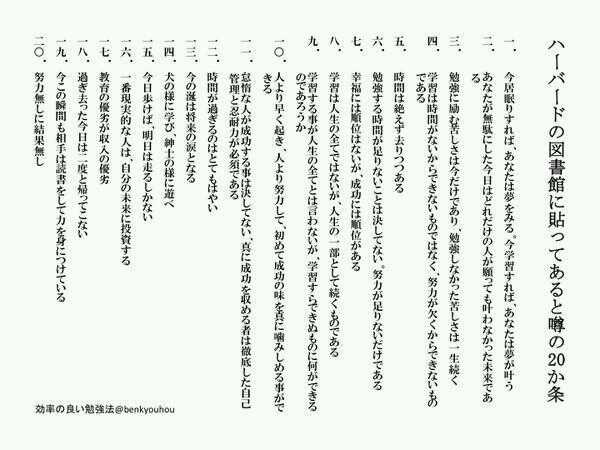 ハーバードの図書館に貼ってあると噂の20か条
一．　今居眠りすれば、あなたは夢をみる。今学習すれば、あなたは夢が叶う
二．　あなたが無駄にした今日はどれだけの人が願っても叶わなかった未来であ
る
三．　勉強に励む苦しさは今だけであり、勉強しなかった苦しさは一生続く
四．　学習は時間がないからできないものではなく、努力が欠くからできないもの
である
五．　時間は絶えず去りつつある
六．　勉強する時間が足りないことは決してない。努力が足りないだけである
七．　幸福には順位はないが、成功には順位がある
八．　学習は人生の全てではないが、人生の一部として続くものである
九．　学習する事が人生の全てとは言わないが、学習すらできぬものに何ができる
のであろうか
一〇．　人より早く起き、人より努力して、初めて成功の味を真に噛みしめる事がで
きる
一一．　怠惰な人が成功する事は決してない、真に成功を収める者は徹底した自己
管理と忍耐力が必須である
一二．　時間が過ぎるのはとてもはやい
一三．　今の涎は将来の涙となる
一四．　犬の様に学び、紳士の様に遊べ
一五．　今日歩けば、明日は走るしかない
一六．　一番現実的な人は、自分の未来に投資する
一七．　教育の優劣が収入の優劣
一八．　過ぎ去った今日は二度と帰ってこない
一九．　今この瞬間も相手は読書をして力を身につけている
二〇．　努力無しに結果無し
効率の良い勉強法@benkyouhou